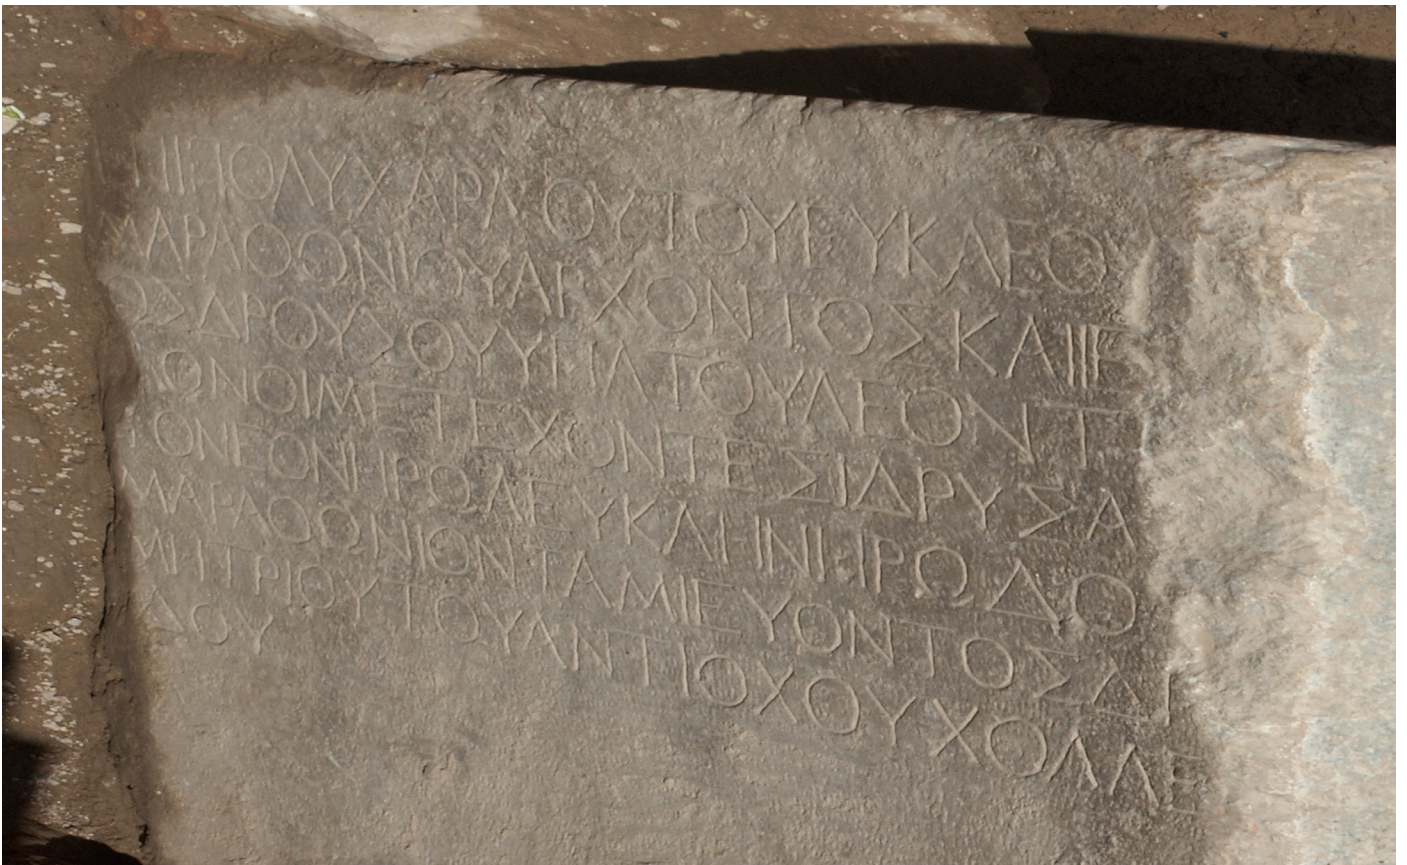 ΕΠΙΠΟΛΥΧΑΡΜΟΥΤΟΥΕΥΚΛΕΟΥ
ΜΑΡΑΘΩΝΙΟΥΑΡΧΟΝΤΟΣΚΑΙΙΕ
ΩΣΔΡΟΥΣΟΥΥΠΑΤΟΥΛΕΟΝΤ
ΔΩΝΟΙΜΕΤΕΧΟΝΤΕΣΙΔΡΥΣΑ
ΤΟΝΕΩΝΗΡΩΑΕΥΚΛΗΝΗΡΩΔΟ
ΜΑΡΑΘΩΝΙΟΝΤΑΜΙΕΥΟΝΤΟΣΔΗ
ΜΗΤΡΙΟΥΤΟΥΑΝΤΙΟΧΟΥΧΟΛΛΕ
ΔΟΥ